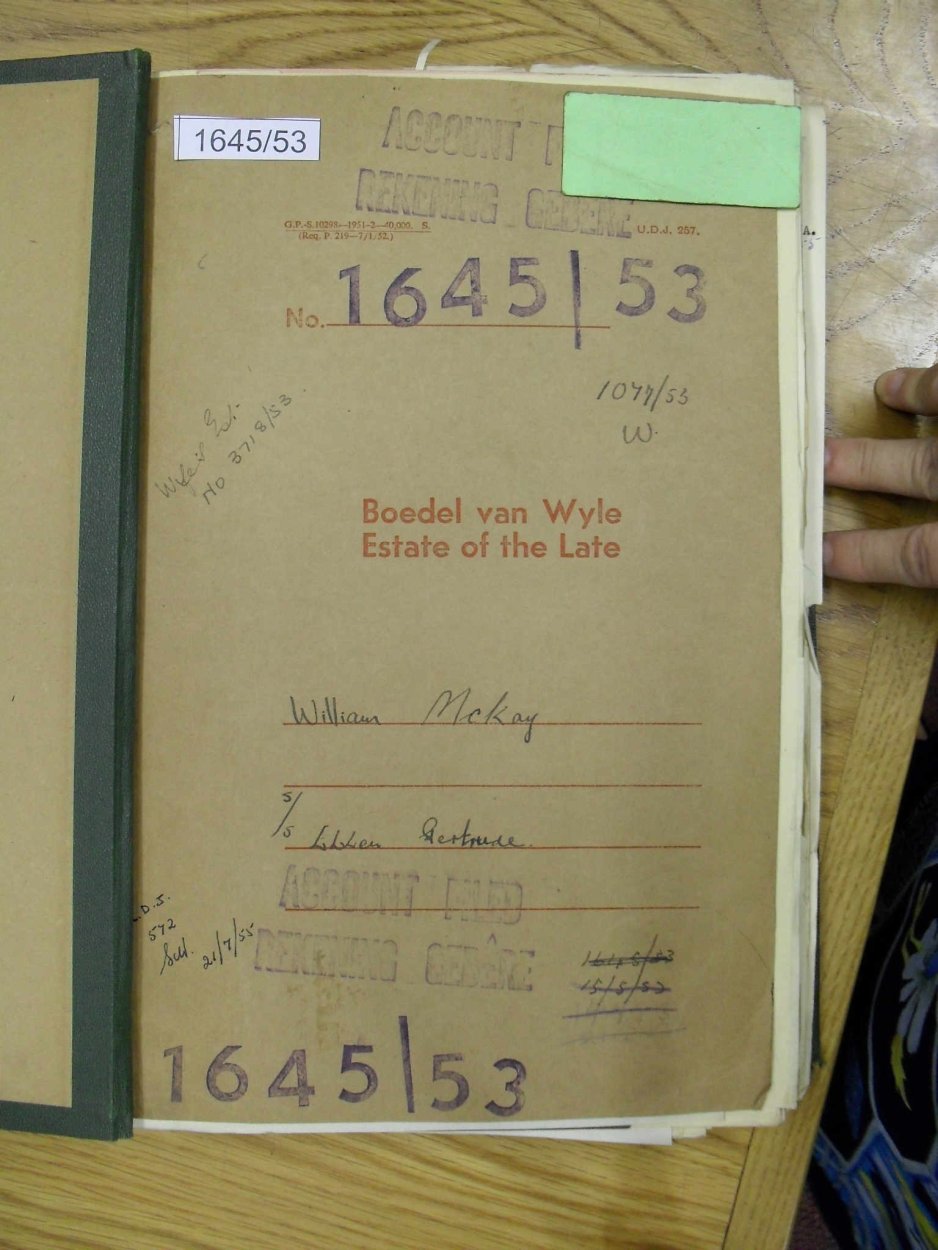 1645/53
ACCOUNT F
REKENING GEBERE
G.P.-S.10298—1951-2—40,000. S.
(Req. P. 219—7/1/52.)
U.D.J. 257.
A.
No. 1645|53
1077/53
W.
Wife's Est:
No 3718/53.
Boedel van Wyle
Estate of the Late
William McKay
s/s Lilian Gertrude.
ACCOUNT FILED
REKENING GEBÊRE
.D.J.
572
21/7/55
1645/53
15/5/53
1645|53